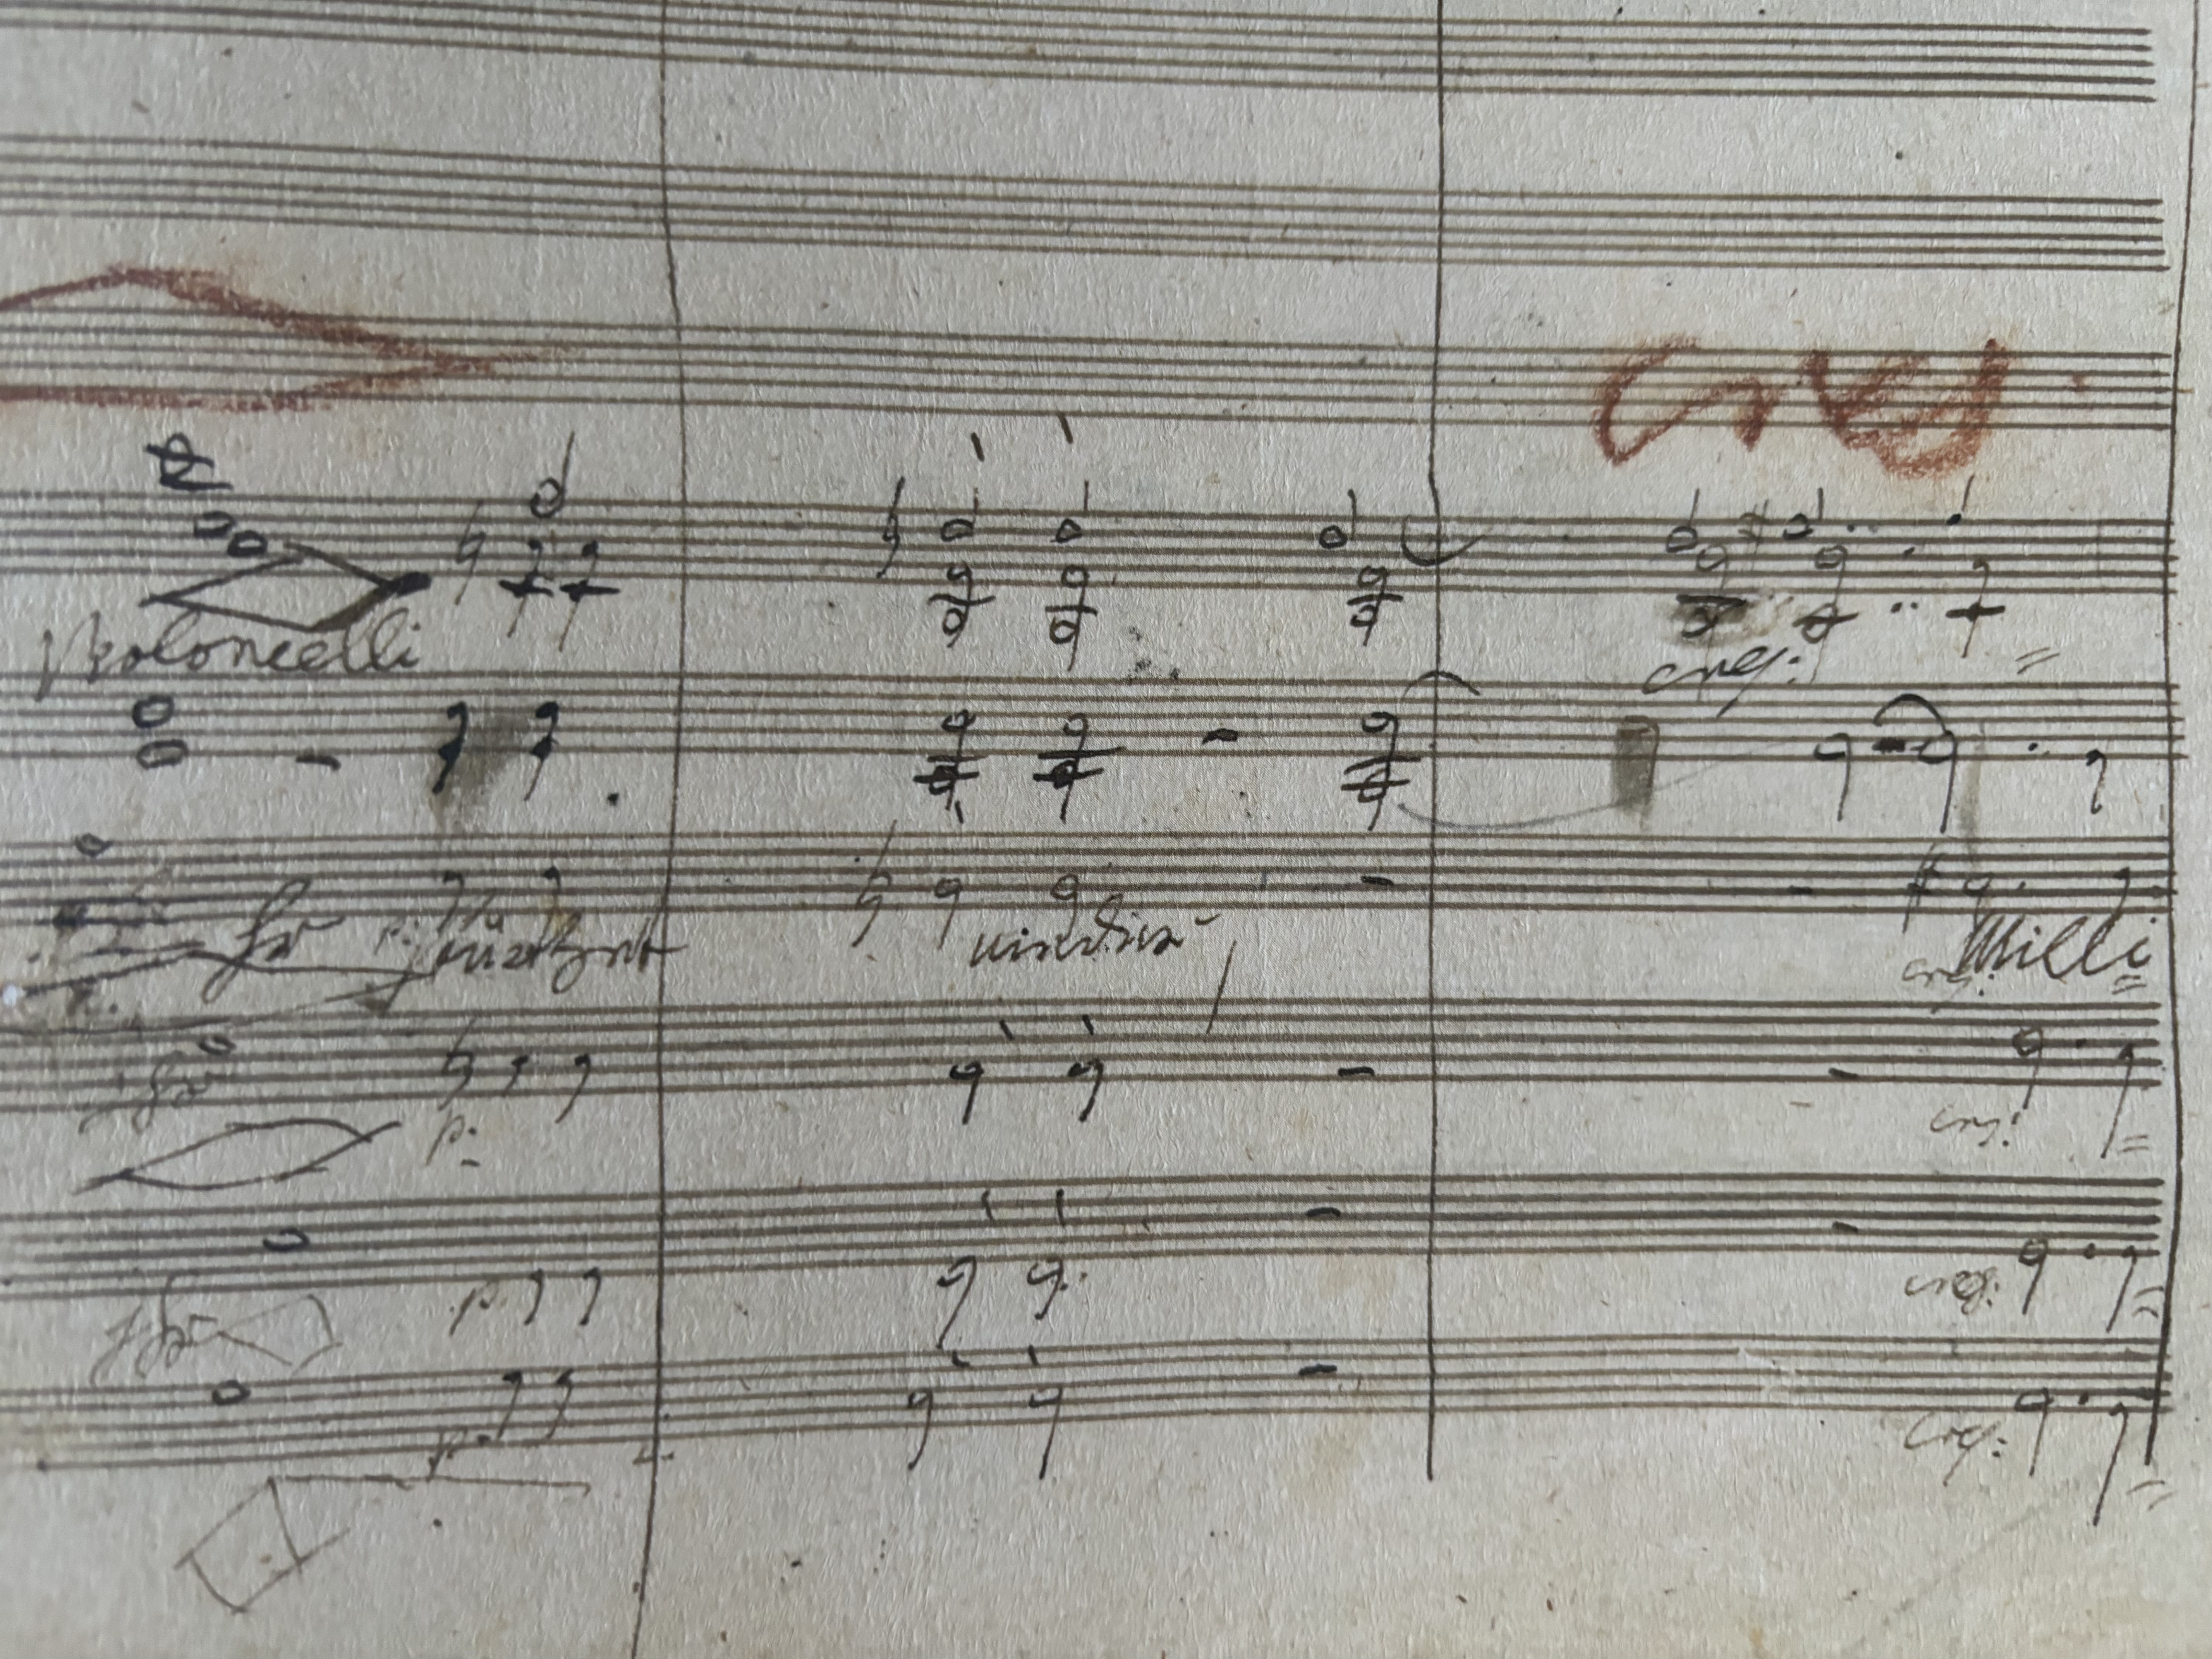 cres
Violoncelli
cres:
Ihr stürzt nieder Milli
cres:
p:
cres:
p:
cres:
p:
cres: